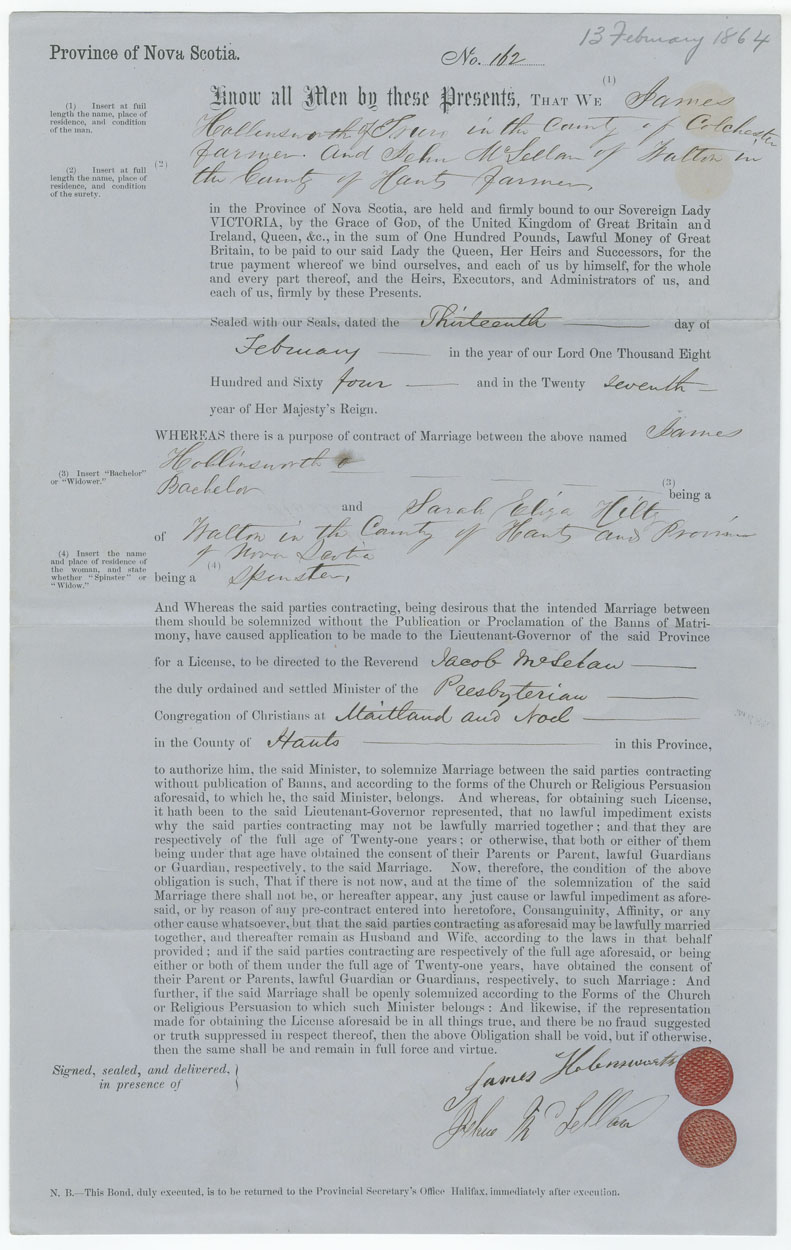 13 February 1864
Province of Nova Scotia.
No. 162
(1)
Know all Men by these Presents, THAT WE James
Hollinsworth of Truro in the County of Colchester
farmer. And John McLellan of Walton in
the County of Hants farmer,
(1) Insert at full
length the name, place of
residence, and condition
of the man.
(2)
(2) Insert at full
length the name, place of
residence, and condition
of the surety.
in the Province of Nova Scotia, are held and firmly bound to our Sovereign Lady
VICTORIA, by the Grace of GOD, of the United Kingdom of Great Britain and
Ireland, Queen, &c., in the sum of One Hundred Pounds, Lawful Money of Great
Britain, to be paid to our said Lady the Queen, Her Heirs and Successors, for the
true payment whereof we bind ourselves, and each of us by himself, for the whole
and every part thereof, and the Heirs, Executors, and Administrators of us, and
each of us, firmly by these Presents.
Sealed with our Seals, dated the Thirteenth day of
February in the year of our Lord One Thousand Eight
Hundred and Sixty four and in the Twenty seventh
year of Her Majesty's Reign.
WHEREAS there is a purpose of contract of Marriage between the above named James
Hollinsworth
(3) Insert "Bachelor"
or "Widower."
(3)
being a
Bachelor
and Sarah Eliza Hiltz
of Walton in the County of Hants and Province
of Nova Scotia
(4) Insert the name
and place of residence of
the woman, and state
whether "Spinster" or
"Widow."
being a (4) Spinster,
And Whereas the said parties contracting, being desirous that the intended Marriage between
them should be solemnized without the Publication or Proclamation of the Banns of Matri-
mony, have caused application to be made to the Lieutenant-Governor of the said Province
for a License, to be directed to the Reverend Jacob McLelan
the duly ordained and settled Minister of the Presbyterian
Congregation of Christians at Maitland and Noel
in the County of Hants in this Province,
to authorize him, the said Minister, to solemnize Marriage between the said parties contracting
without publication of Banns, and according to the forms of the Church or Religious Persuasion
aforesaid, to which he, the said Minister, belongs. And whereas, for obtaining such License,
it hath been to the said Lieutenant-Governor represented, that no lawful impediment exists
why the said parties contracting may not be lawfully married together; and that they are
respectively of the full age of Twenty-one years; or otherwise, that both or either of them
being under that age have obtained the consent of their Parents or Parent, lawful Guardians
or Guardian, respectively, to the said Marriage. Now, therefore, the condition of the above
obligation is such, That if there is not now, and at the time of the solemnization of the said
Marriage there shall not be, or hereafter appear, any just cause or lawful impediment as afore-
said, or by reason of any pre-contract entered into heretofore, Consanguinity, Affinity, or any
other cause whatsoever, but that the said parties contracting as aforesaid may be lawfully married
together, and thereafter remain as Husband and Wife, according to the laws in that behalf
provided; and if the said parties contracting are respectively of the full age aforesaid, or being
either or both of them under the full age of Twenty-one years, have obtained the consent of
their Parent or Parents, lawful Guardian or Guardians, respectively, to such Marriage: And
further, if the said Marriage shall be openly solemnized according to the Forms of the Church
or Religious Persuasion to which such Minister belongs: And likewise, if the representation
made for obtaining the License aforesaid be in all things true, and there be no fraud suggested
or truth suppressed in respect thereof, then the above Obligation shall be void, but if otherwise,
then the same shall be and remain in full force and virtue.
Signed, sealed, and delivered,
in presence of
James Holensworth
John McLellan
N. B.—This Bond, duly executed, is to be returned to the Provincial Secretary's Office Halifax, immediately after execution.